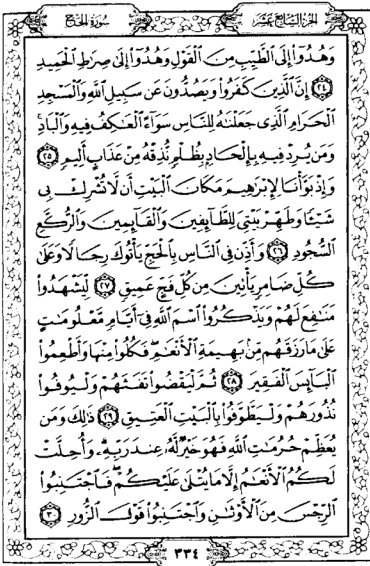 سُورَةُ الحَجّ
الجُزْءُ السَّابِعَ عَشَرَ
وَهُدُوٓا۟ إِلَى ٱلطَّيِّبِ مِنَ ٱلْقَوْلِ وَهُدُوٓا۟ إِلَىٰ صِرَٰطِ ٱلْحَمِيدِ
﴿٢٤﴾ إِنَّ ٱلَّذِينَ كَفَرُوا۟ وَيَصُدُّونَ عَن سَبِيلِ ٱللَّهِ وَٱلْمَسْجِدِ
ٱلْحَرَامِ ٱلَّذِى جَعَلْنَٰهُ لِلنَّاسِ سَوَآءً ٱلْعَٰكِفُ فِيهِ وَٱلْبَادِ ۚ
وَمَن يُرِدْ فِيهِ بِإِلْحَادٍۭ بِظُلْمٍ نُّذِقْهُ مِنْ عَذَابٍ أَلِيمٍ ﴿٢٥﴾
وَإِذْ بَوَّأْنَا لِإِبْرَٰهِيمَ مَكَانَ ٱلْبَيْتِ أَن لَّا تُشْرِكْ بِى
شَيْـًٔا وَطَهِّرْ بَيْتِىَ لِلطَّآئِفِينَ وَٱلْقَآئِمِينَ وَٱلرُّكَّعِ
ٱلسُّجُودِ ﴿٢٦﴾ وَأَذِّن فِى ٱلنَّاسِ بِٱلْحَجِّ يَأْتُوكَ رِجَالًا وَعَلَىٰ
كُلِّ ضَامِرٍ يَأْتِينَ مِن كُلِّ فَجٍّ عَمِيقٍ ﴿٢٧﴾ لِّيَشْهَدُوا۟
مَنَٰفِعَ لَهُمْ وَيَذْكُرُوا۟ ٱسْمَ ٱللَّهِ فِىٓ أَيَّامٍ مَّعْلُومَٰتٍ
عَلَىٰ مَا رَزَقَهُم مِّنۢ بَهِيمَةِ ٱلْأَنْعَٰمِ ۖ فَكُلُوا۟ مِنْهَا وَأَطْعِمُوا۟
ٱلْبَآئِسَ ٱلْفَقِيرَ ﴿٢٨﴾ ثُمَّ لْيَقْضُوا۟ تَفَثَهُمْ وَلْيُوفُوا۟
نُذُورَهُمْ وَلْيَطَّوَّفُوا۟ بِٱلْبَيْتِ ٱلْعَتِيقِ ﴿٢٩﴾ ذَٰلِكَ وَمَن
يُعَظِّمْ حُرُمَٰتِ ٱللَّهِ فَهُوَ خَيْرٌ لَّهُۥ عِندَ رَبِّهِۦ ۗ وَأُحِلَّتْ
لَكُمُ ٱلْأَنْعَٰمُ إِلَّا مَا يُتْلَىٰ عَلَيْكُمْ ۖ فَٱجْتَنِبُوا۟
ٱلرِّجْسَ مِنَ ٱلْأَوْثَٰنِ وَٱجْتَنِبُوا۟ قَوْلَ ٱلزُّورِ ﴿٣٠﴾
٣٣٤